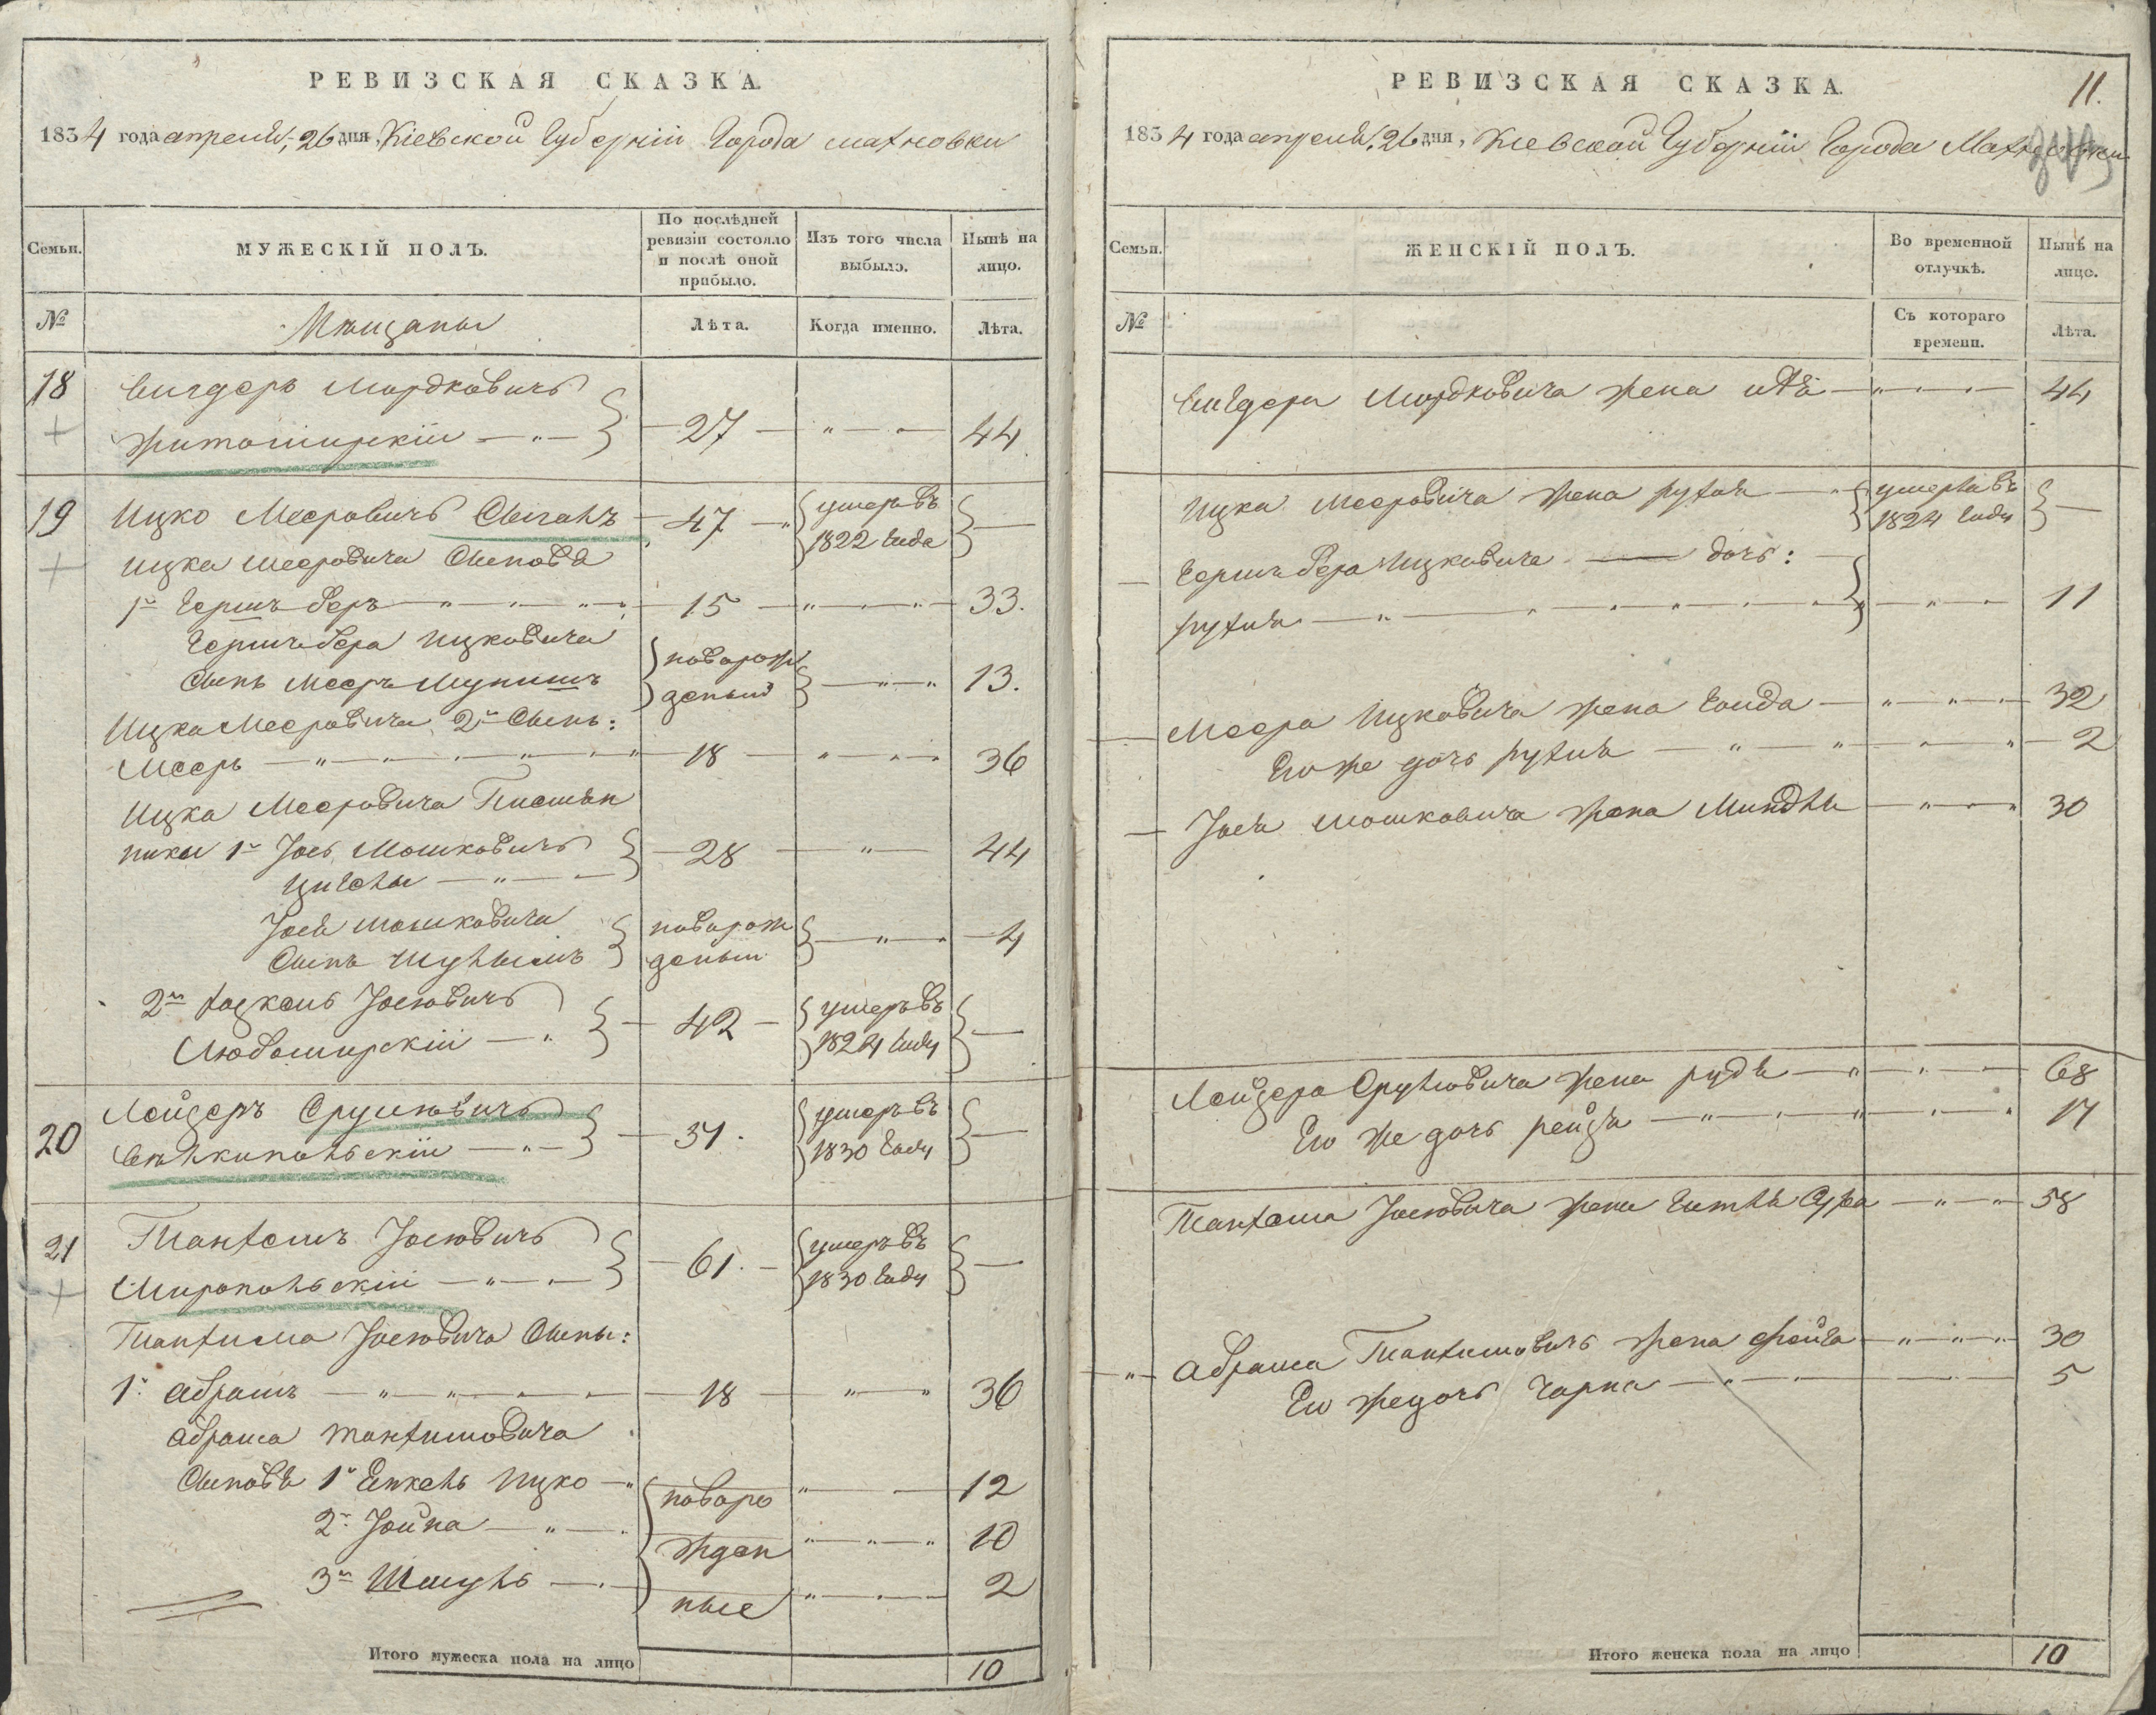 РЕВИЗСКАЯ СКАЗКА.
1834 года апреля, 26 дня, Кіевской Губерніи Города махновки
Семьи.
МУЖЕСКІЙ ПОЛЪ.
По послѣдней ревизіи состояло и послѣ оной прибыло.
Изъ того числа выбыло.
Нынѣ на лицо.
№
Мѣщаны
Лѣта.
Когда именно.
Лѣта.
18 Вигдеръ Мордковичъ
Житомирскій — 27 — 44
19 Ицко Мееровичъ 47 умеръ въ 1822 года
Ицка Мееровича Сыновя
1й Гершъ беръ 15 33.
Гершъ бера Ицковича
Сынъ Мееръ новорожденый 13.
Ицка Мееровича 2й Сынъ:
Мееръ 18 36
Ицка Мееровича Племян
ники 1й Іось Мошковичъ 28 44
Іося Мошковича
Сынъ новорожденый 4
2й Іосіовичъ
Любомирскій — 42 умеръ въ 1824 году
20 Лейзеръ Сруліовичъ
31. умеръ въ 1830 году
21 Танхемъ Іосіовичъ
Миропольскій — 61. умеръ въ 1830 году
Танхима Іосіовича Сыны:
1й Абрамъ 18 36
Абрама Танхимовича
Сыновя 1й Янкель Ицко — новорожденные 12
2й Іойна 10
3й Шмуль 2
Итого мужеска пола на лицо 10
РЕВИЗСКАЯ СКАЗКА.
11.
1834 года апреля, 26 дня, Кіевской Губерніи Города Махновки
Семьи.
ЖЕНСКІЙ ПОЛЪ.
Во временной отлучкѣ.
Нынѣ на лицо.
№
Съ котораго времени.
Лѣта.
Вигдера Мордковича жена 44
Ицка Мееровича жена рухля умерла въ 1824 году
Гершъ бера Ицковича дочь:
рухля 11
Меера Ицковича жена 32
Его же дочь рухля 2
Іося Мошковича жена Миндля 30
Лейзера Срулiовича жена рудя 68
Его же дочь рейзя 17
Танхема Іосіовича жена Сура 58
Абрама Танхимовичъ жена фейга 30
Ею же дочь Чарна 5
Итого женска пола на лицо 10